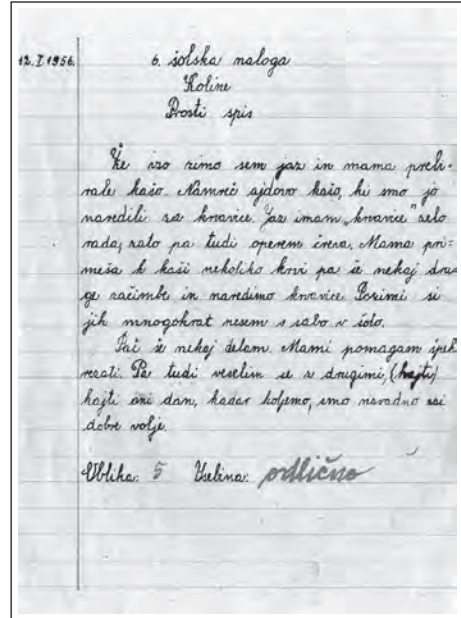 12. I. 1956.
6. šolska naloga
Koline
Prosti spis
Že vso zimo sem jaz in mama prebi-
rale kašo. Namreč ajdovo kašo, ki smo jo
naredili za krvavice. Jaz imam „krvavice" zelo
rada, zato pa tudi operem čreva. Mama pri-
meša k kaši nekoliko krvi pa še nekaj dru-
ge začimbe in naredimo krvavice. Pozimi si
jih mnogokrat nesem s sabo v šolo.
Pač še nekaj delam. Mami pomagam špeh
rezati. Pa tudi veselim se z drugimi, (hajti)
kajti oni dan, kadar koljemo, smo navadno vsi
dobre volje.
Oblika: 5 Vsebina: odlično